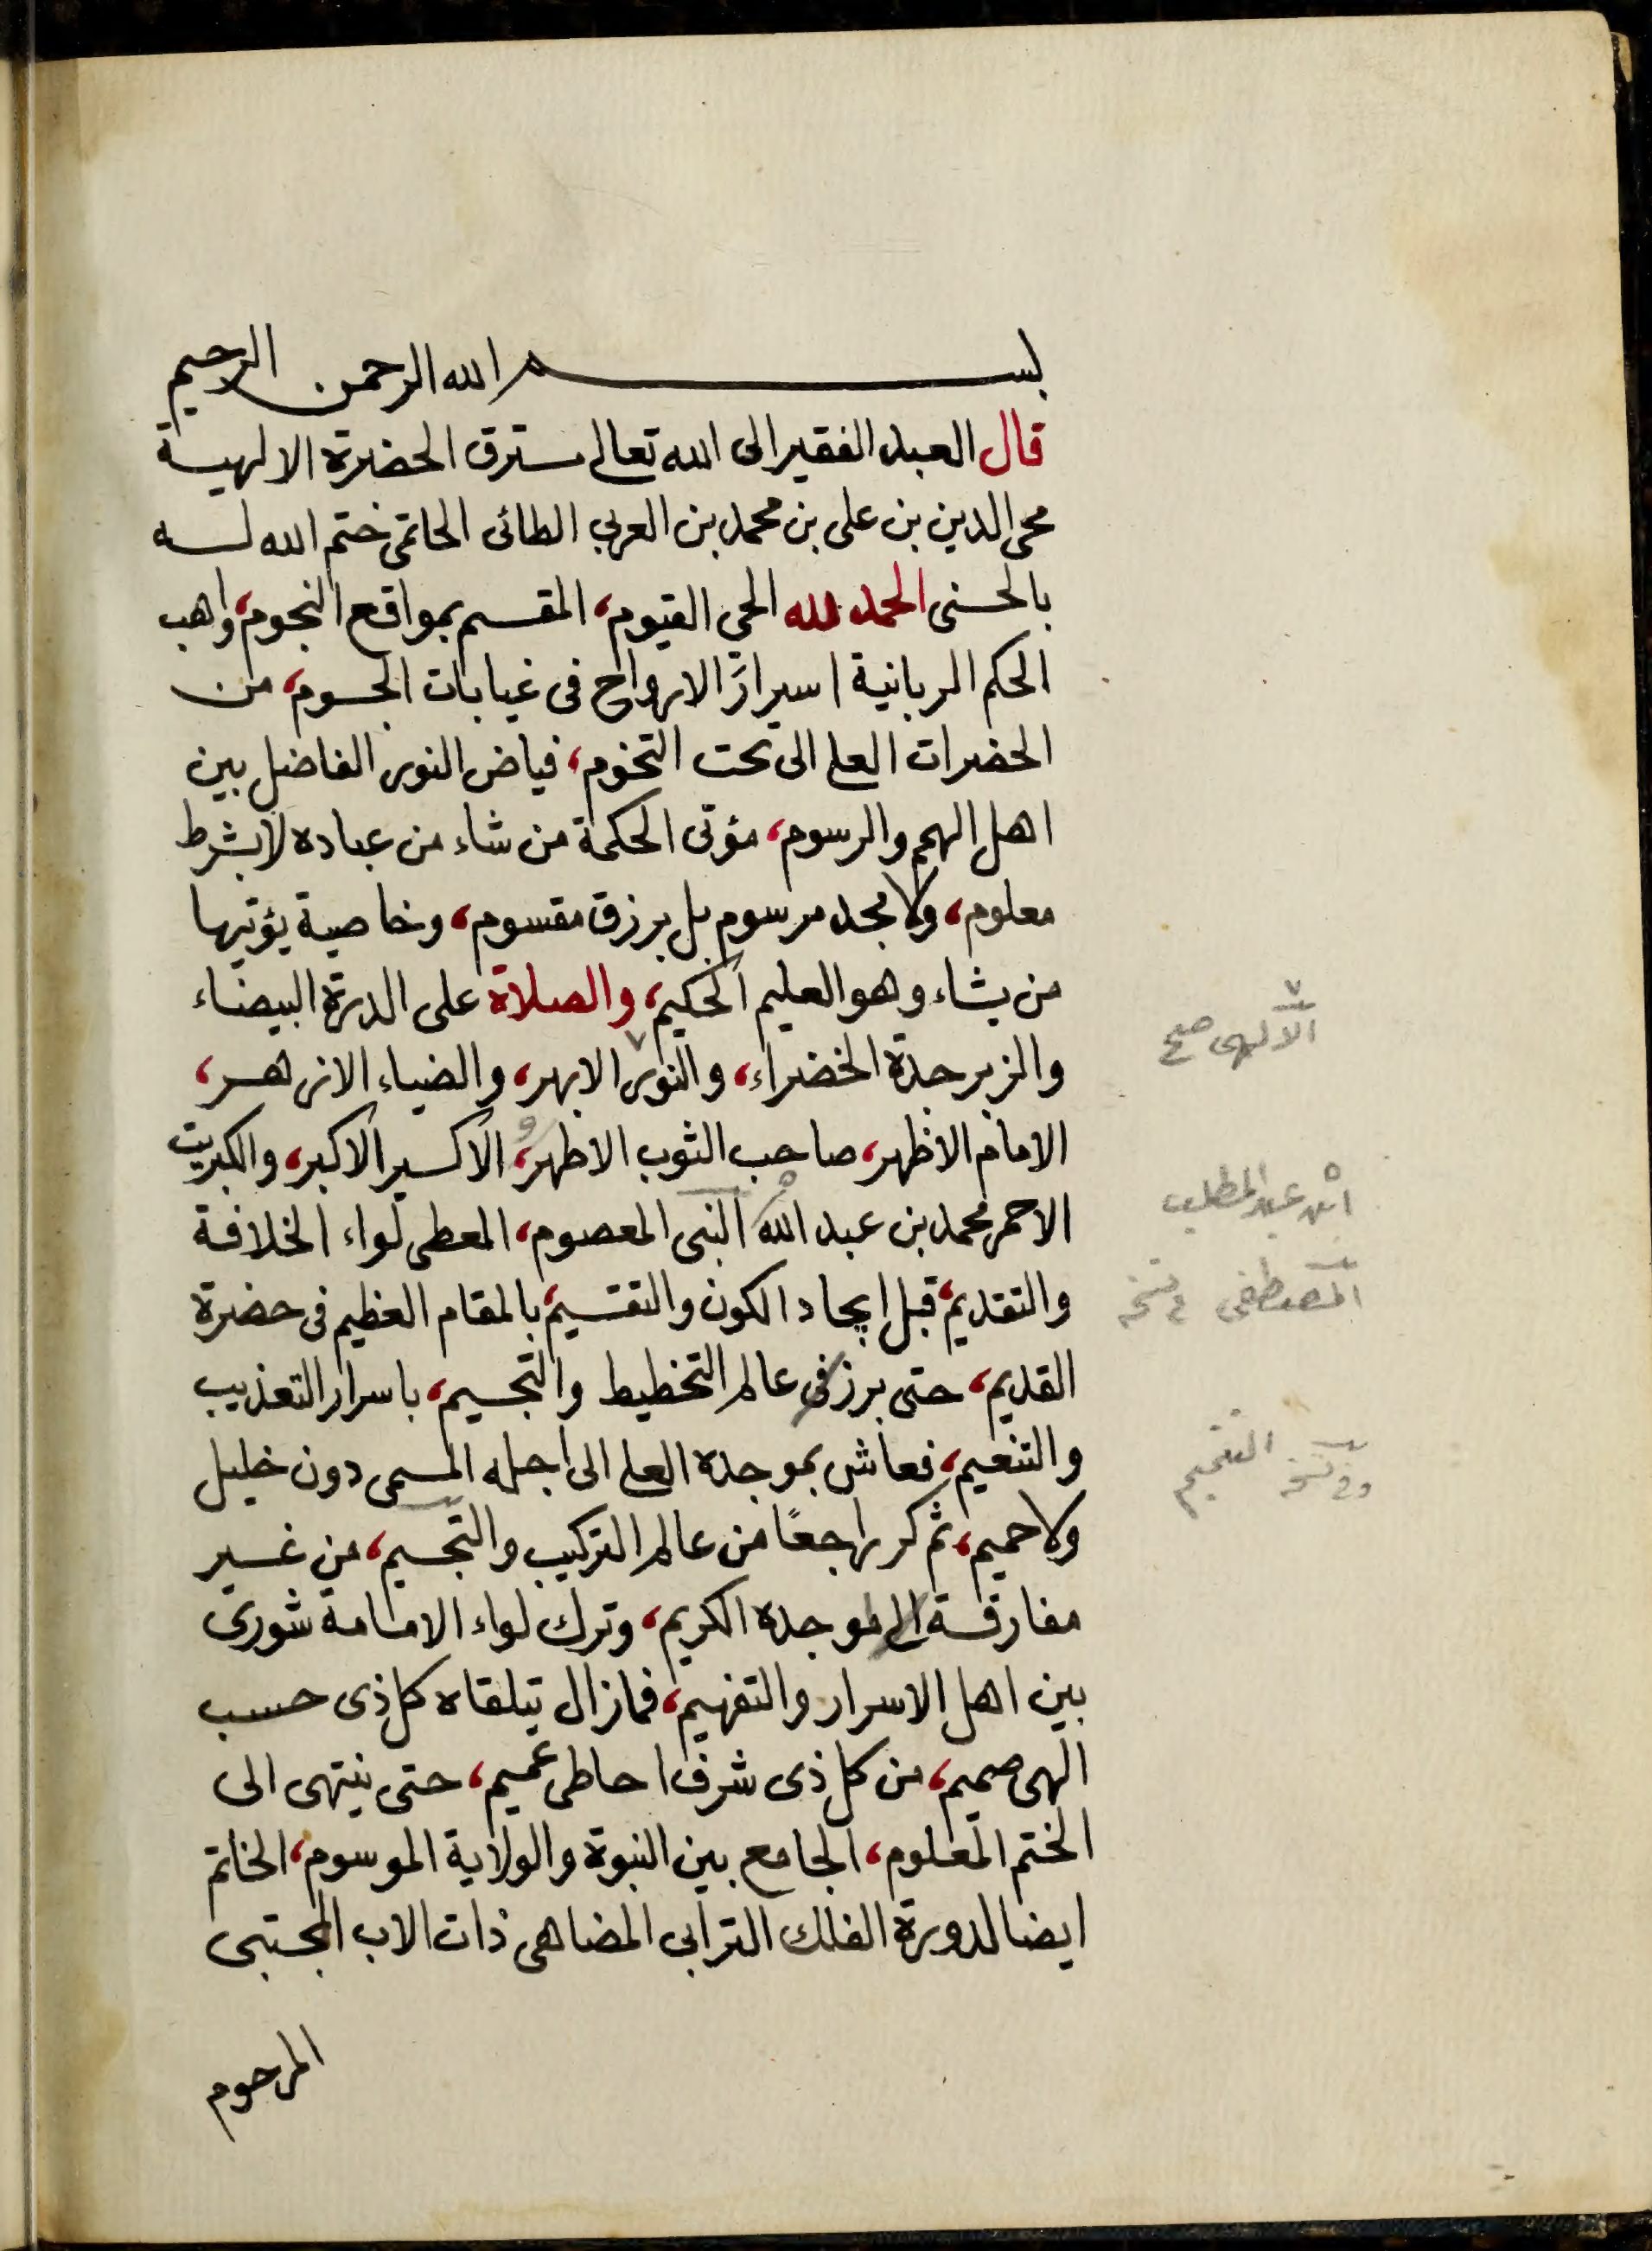 بسم الله الرحمن الرحيم
قال العبد الفقير الى الله تعالى مسترق الحضرة الالهية
محى الدين بن على بن محمد بن العربي الطائى الحاتمى ختم الله له
بالحسنى الحمد لله الحي القيوم، المقسم بمواقع النجوم، واهب
الحكم الربانية اسرارَ الارواح فى غيابات الجسوم، من
الحضرات العلى الى تحت التخوم، فياض النور الفاضل بين
اهل الهمم والرسوم، مؤتى الحكمة من شاء من عباده لا بشرط
معلوم، ولا مجد مرسوم بل برزق مقسوم، وخاصية يؤتيها
من يشاء وهو العليم الحكيم، والصلاة على الدرة البيضاء
والزبرجدة الخضراء، والنور الابهر، والضياء الازهر،
الامام الاظهر، صاحب الثوب الاطهر، و الاكسير الاكبر، والكبريت
الاحمر محمد بن عبد الله النبى المعصوم، المعطى لواء الخلافة
والتقديم، قبل ايجاد الكون والتقسيم، بالمقام العظيم فى حضرة
القديم، حتى برز فى عالم التخطيط والتجسيم، باسرار التعذيب
والتنعيم، فعاش بموجده العلى الى اجله المسمى دون خليل
ولا حميم، ثم كر راجعًا من عالم التركيب والتجسيم، من غير
مفارقة الى موجده الكريم، وترك لواء الامامة شورى
بين اهل الاسرار والتفهيم، فمازال يتلقاه كل ذى حسب
الهى صميم، من كل ذى شرف احاطى عميم، حتى ينتهى الى
الختم المعلوم، الجامع بين النبوة والولاية الموسوم، الخاتم
ايضا لدورة الفلك الترابى المضاهى ذات الاب المجتبى
المرحوم
الالهى صح
ابن عبد المطلب
المصطفى فى نسخه
وفى نسخه التعميم